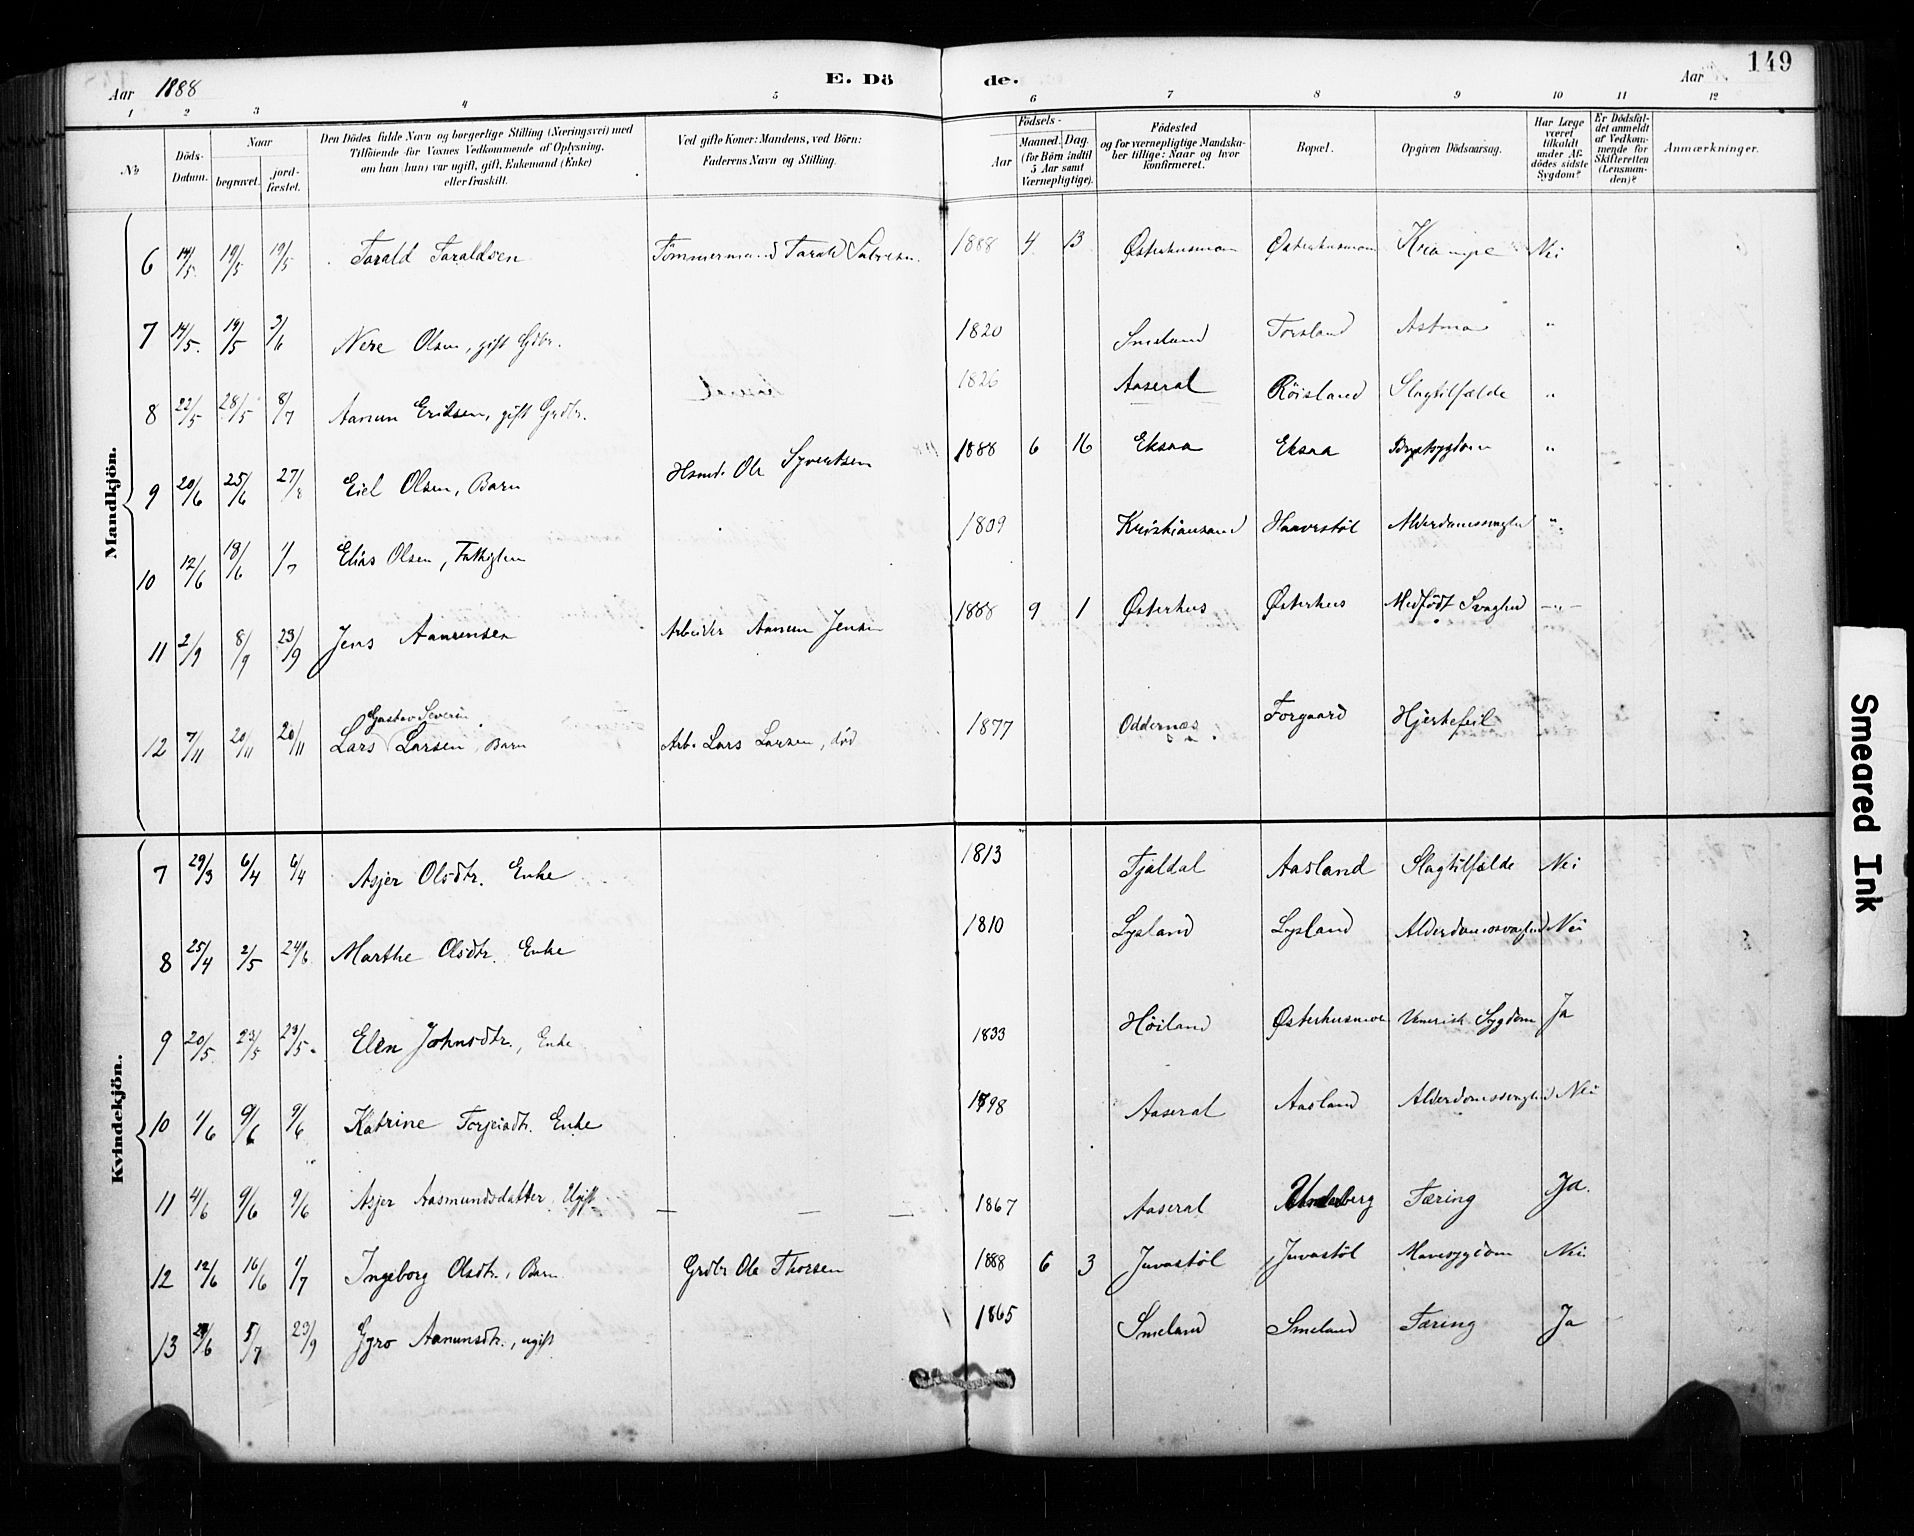 149
Aar 1888 E. Dö de. Aar
1 2 3 4 5 6 7 8 9 10 11 12
No
Döds-Datum.
Naar
begravet.
jord-fæstet.
Den Dödes fulde Navn og borgerlige Stilling (Næringsvei) med
Tilföiende for Voxnes Vedkommende af Oplysning,
om han (hun) var ugift, gift, Enkemand (Enke)
eller fraskilt.
Ved gifte Koner: Mandens, ved Börn:
Faderens Navn og Stilling.
Födsels-
Aar
Maaned. Dag.
(for Börn indtil
5 Aar samt
Værnepligtige).
Födested
og for værnepligtige Mandska-
ber tillige: Naar og hvor
konfirmeret.
Bopæl.
Opgiven Dödsaarsag.
Har Læge
været
tilkaldt
under Af-
dödes sidste
Sygdom?
Er Dödsfal-
det anmeldt
af Vedkom-
mende for
Skifteretten
(Lensman-
den)?
Anmærkninger.
Mandkjön.
6 14/5 19/5 19/5 Tarald Taraldsen Tømmermand Tarald Salvesen 1888 4 13 Østerhusmon Østerhusmon Krampe Nei
7 14/5 19/5 3/6 Nere Olsen, gift Gdbr. 1820 Smeland Torsland Astma "
8 22/5 28/5 8/7 Aanun Eriksen, gift Grdbr. 1826 Aaseral Røisland Slagtilfælde "
9 20/6 25/6 27/8 Eiel Olsen, Barn Hsmd. Ole Syvertsen 1888 6 16 Eksaa Eksaa Brystsygdom "
10 12/6 18/6 1/7 Elias Olsen, Fattiglem 1809 Kristiansand Haavestøl Alderdomssvaghed "
11 2/9 8/9 23/9 Jens Aanensen Arbeider Aanen Jensen 1888 9 1 Østerhus Østerhus Medfødt Svaghed - " -
Gustav Severin
12 7/11 20/11 20/11 Lars Larsen, Barn Arb. Lars Larsen, død 1877 Oddernæs Forgaard Hjertefeil
Kvindekjön.
7 29/3 6/4 6/4 Asjer Olsdtr. Enke 1813 Fjaldal Aasland Slagtilfælde Nei
8 25/4 2/5 24/6 Marthe Olsdtr. Enke 1810 Lysland Lysland Alderdomssvaghed Nei
9 20/5 23/5 23/5 Elen Johnsdtr., Enke 1833 Høiland Østerhusmoen Venerisk Sygdom Ja
10 1/6 9/6 9/6 Katrine Torjeisdtr. Enke 1798 Aaseral Aasland Alderdomssvaghed Nei
11 4/6 9/6 9/6 Asjer Aasmundsdatter Ugift — — — 1867 Aaseral Underberg Tæring Ja.
12 12/6 16/6 1/7 Ingeborg Olsdtr., Barn Grdbr Ole Thorsen 1888 6 3 Juvastøl Juvastøl Mavesygdom Nei
13 29/6 5/7 23/9 Gyro Aanunsdtr., ugift 1865 Smeland Smeland Tæring Ja
Smeared Ink